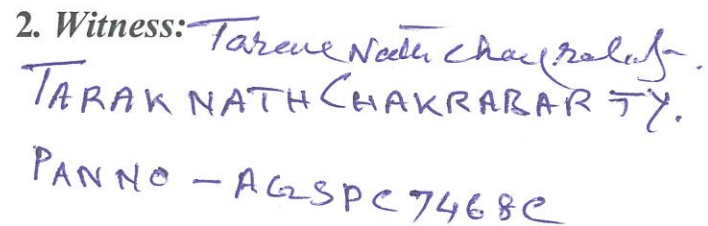 2. Witness:- Tarak Nath Chakrabarty.
TARAK NATH CHAKRABARTY.
PAN NO - AGSPC7468C